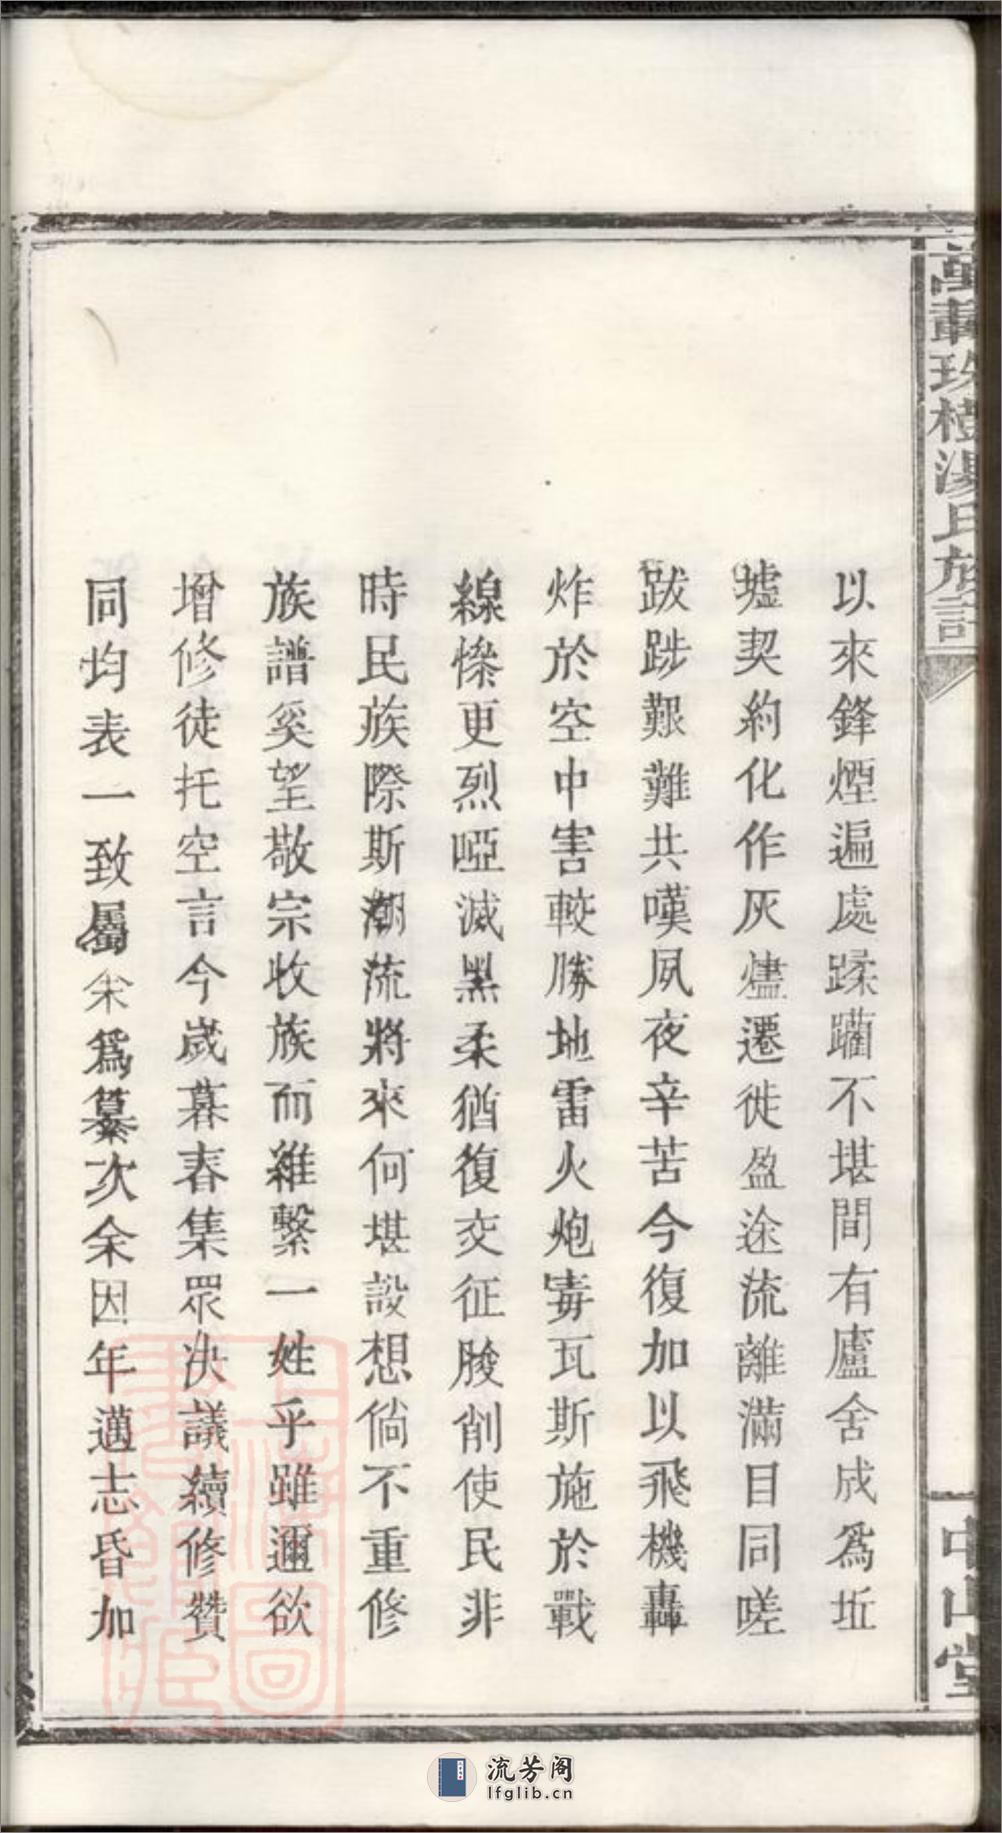 萬載珠樹湯氏族譜
中山堂
以來鋒煙遍處蹂躪不堪間有廬舍成爲坵
墟契約化作灰燼遷徙盈途流離滿目同嗟
跋跣艱難共嘆夙夜辛苦今復加以飛機轟
炸於空中害較勝地雷火炮毒瓦斯施於戰
線慘更烈啞滅黑柔猶復交征朘削使民非
時民族際斯潮流將來何堪設想倘不重修
族譜奚望敬宗收族而維繫一姓乎雖邇欲
增修徒托空言今歲暮春集眾決議續修贊
同均表一致屬余爲纂次余因年邁志昏加
流芳阁
lfglib.cn